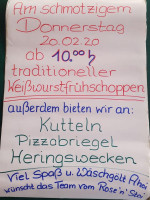 Am schmotzigem
Donnerstag
20.02.20
ab 10.00h
traditioneller
Weißwurstfrühschoppen
außerdem bieten wir an:
Kutteln
Pizzabriegel
Heringswecken
Viel Spaß u. Wäschgölt Ahoi
wünscht das Team vom Rose'n'